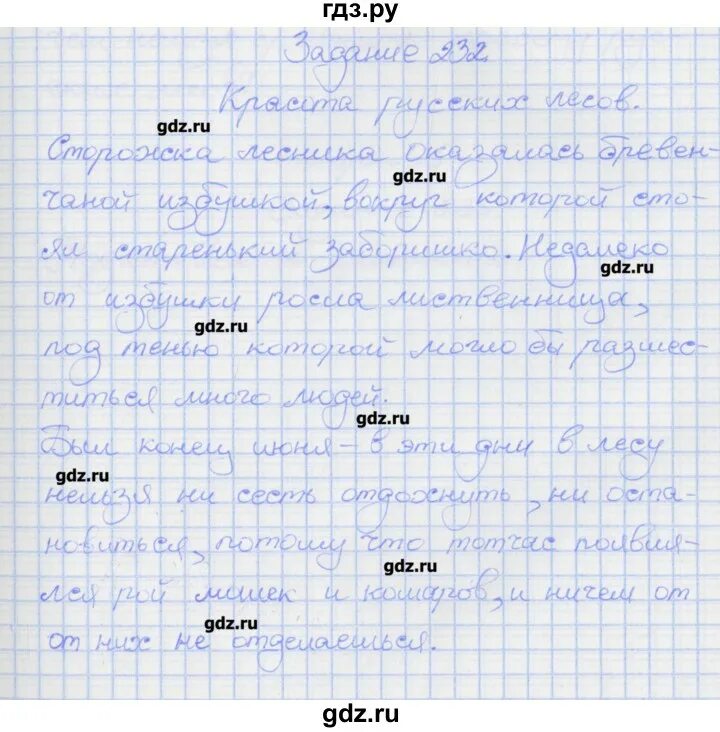 гдз.ру
Задание 232.
Красота русских лесов.
gdz.ru
Сторожка лесника оказалась бревен-
gdz.ru
чатой избушкой, вокруг которой сто-
ял старенький заборишко. Недалеко
gdz.ru
от избушки росла лиственница,
gdz.ru
под тенью которой могло бы размес-
титься много людей.
gdz.ru
Был конец июня – в эти дни в лесу
gdz.ru
нельзя ни сесть отдохнуть, ни оста-
новиться, потому что тотчас появля-
gdz.ru
лся рой мошек и комаров, и ничем от
gdz.ru
от них не отделаешься.
gdz.ru